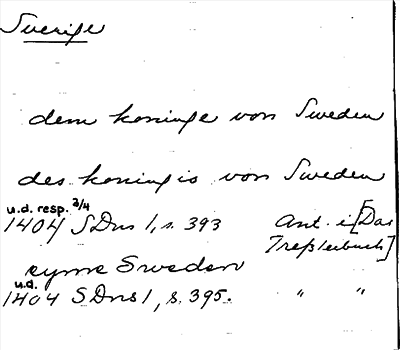 Sverige
dem koninge von Sweden
des koningis von Sweden
u.d. resp. 3/4
1404 SDns 1, s. 393 Ant. i [Das
Tresslerbuch]
eyme Sweden
u.d.
1404 SDns 1, s. 395. " "